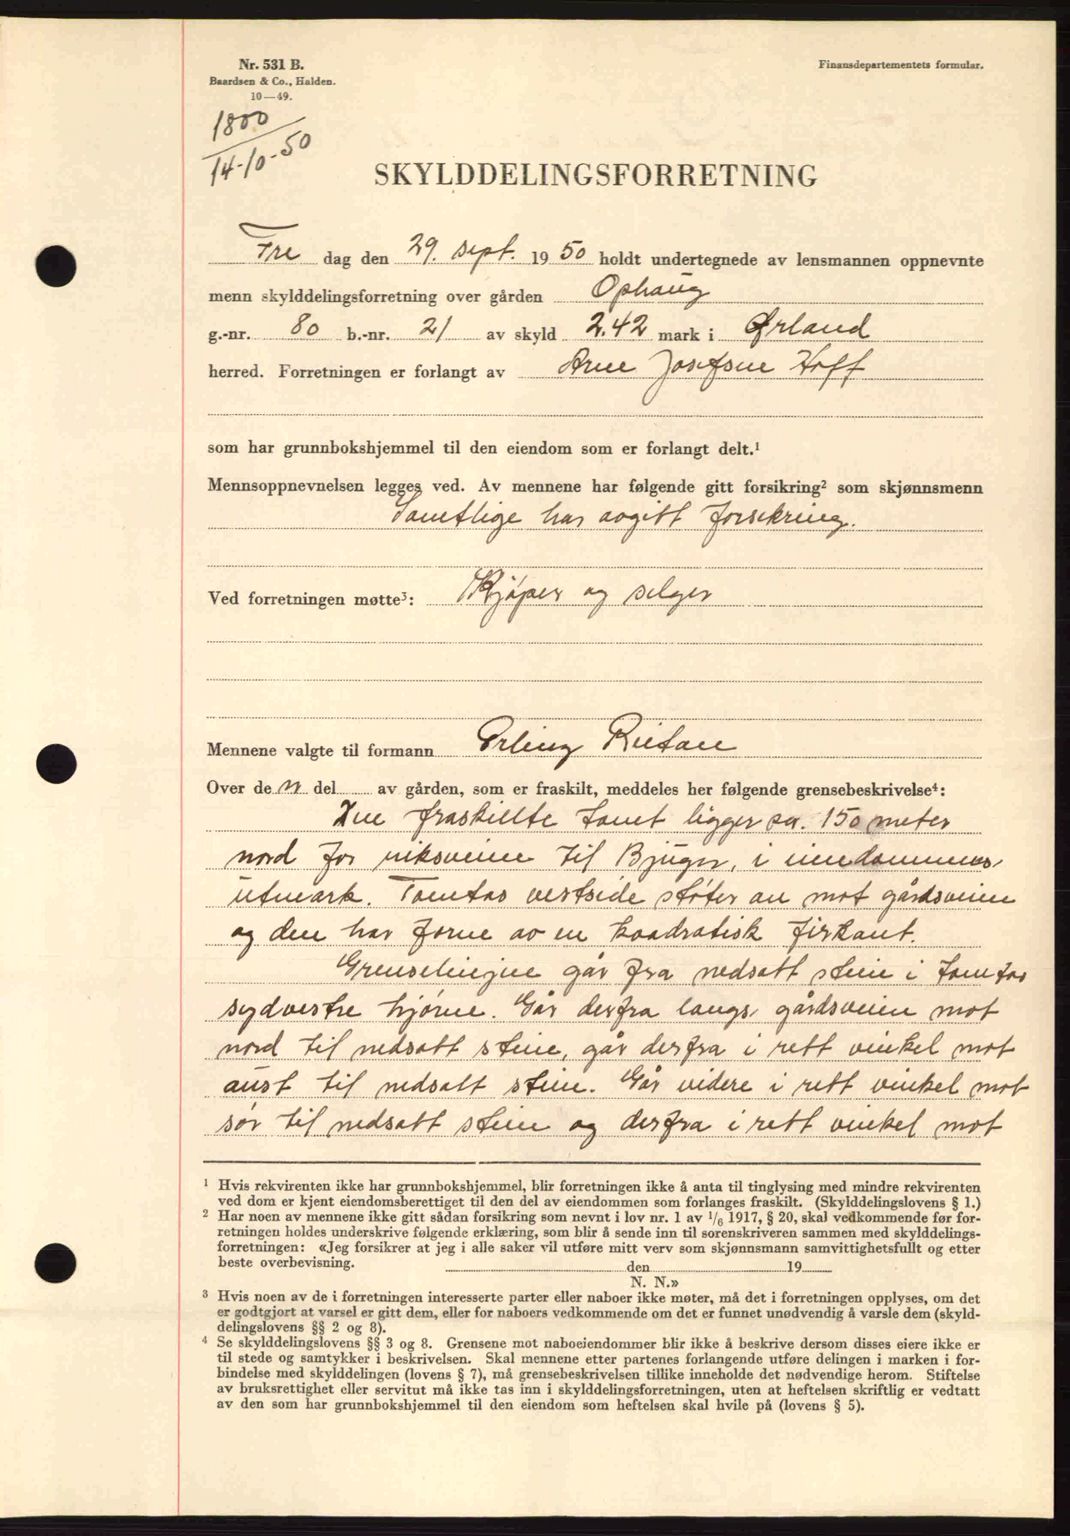 Nr. 531 B.
Baardsen & Co., Halden.
10—49.
Finansdepartementets formular.
1800
14-10-50
SKYLDDELINGSFORRETNING
Fre dag den 29. sept. 1950 holdt undertegnede av lensmannen oppnevnte
menn skylddelingsforretning over gården Ophaug
g.-nr. 80 b.-nr. 21 av skyld 2.42 mark i Ørland
herred. Forretningen er forlangt av Arne Josefsne Hoff
som har grunnbokshjemmel til den eiendom som er forlangt delt.¹
Mennsoppnevnelsen legges ved. Av mennene har følgende gitt forsikring² som skjønnsmenn
Samtlige har avgitt forsikring.
Ved forretningen møtte³: Kjøper og selger
Mennene valgte til formann Erling Rietan
Over de n del av gården, som er fraskilt, meddeles her følgende grensebeskrivelse⁴:
Den fraskillte tomt ligger ca. 150 meter
nord for riksveien til Bjugn, i eiendommens
utmark. Tomtas vestside støter an mot gårdsveien
og den har form av en kvadratisk firkant.
Grenselinjne går fra nedsatt stein i tomtas
sydvestre hjørne. Går derfra langs gårdsveien mot
nord til nedsatt stein, går derfra i rett vinkel mot
aust til nedsatt stein. Går videre i rett vinkel mot
sør til nedsatt stein og derfra i rett vinkel mot
¹ Hvis rekvirenten ikke har grunnbokshjemmel, blir forretningen ikke å anta til tinglysing med mindre rekvirenten
ved dom er kjent eiendomsberettiget til den del av eiendommen som forlanges fraskilt. (Skylddelingslovens § 1.)
² Har noen av mennene ikke gitt sådan forsikring som nevnt i lov nr. 1 av 1/6 1917, § 20, skal vedkommende før for-
retningen holdes underskrive følgende erklæring, som blir å sende inn til sorenskriveren sammen med skylddelings-
forretningen: «Jeg forsikrer at jeg i alle saker vil utføre mitt verv som skjønnsmann samvittighetsfullt og etter
beste overbevisning. den 19
N. N.»
³ Hvis noen av de i forretningen interesserte parter eller naboer ikke møter, må det i forretningen opplyses, om det
er godtgjort at varsel er gitt dem, eller for naboers vedkommende om det er funnet unødvendig å varsle dem (skyld-
delingslovens §§ 2 og 8).
⁴ Se skylddelingslovens §§ 3 og 8. Grensene mot naboeiendommer blir ikke å beskrive dersom disses eiere ikke er
til stede og samtykker i beskrivelsen. Skal mennene etter partenes forlangende utføre delingen i marken i for-
bindelse med skylddelingen (lovens § 7), må grensebeskrivelsen tillike inneholde det nødvendige herom. Stiftelse
av bruksrettighet eller servitut må ikke tas inn i skylddelingsforretningen, uten at heftelsen skriftlig er vedtatt
av den som har grunnbokshjemmel til den eiendom som heftelsen skal hvile på (lovens § 5).